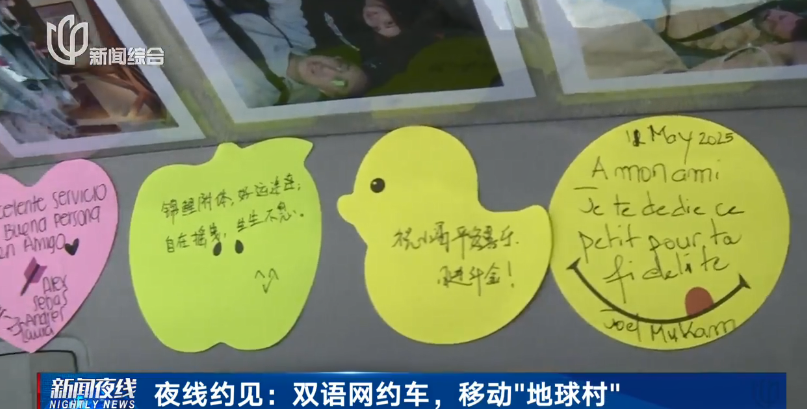 新闻综合
celente servicio
Buena Persona
en Amigo
Alex
Sebas
Andrei
Laura
锦鲤附体,好运连连,
自在摇曳,生生不息。
平安喜乐.
日进斗金!
12 May 2025
A mon ami
Je te dedie ce
petit pour ta
fidelite
Joel Mukam
新闻夜线
NIGHTLY NEWS
夜线约见:双语网约车,移动"地球村"